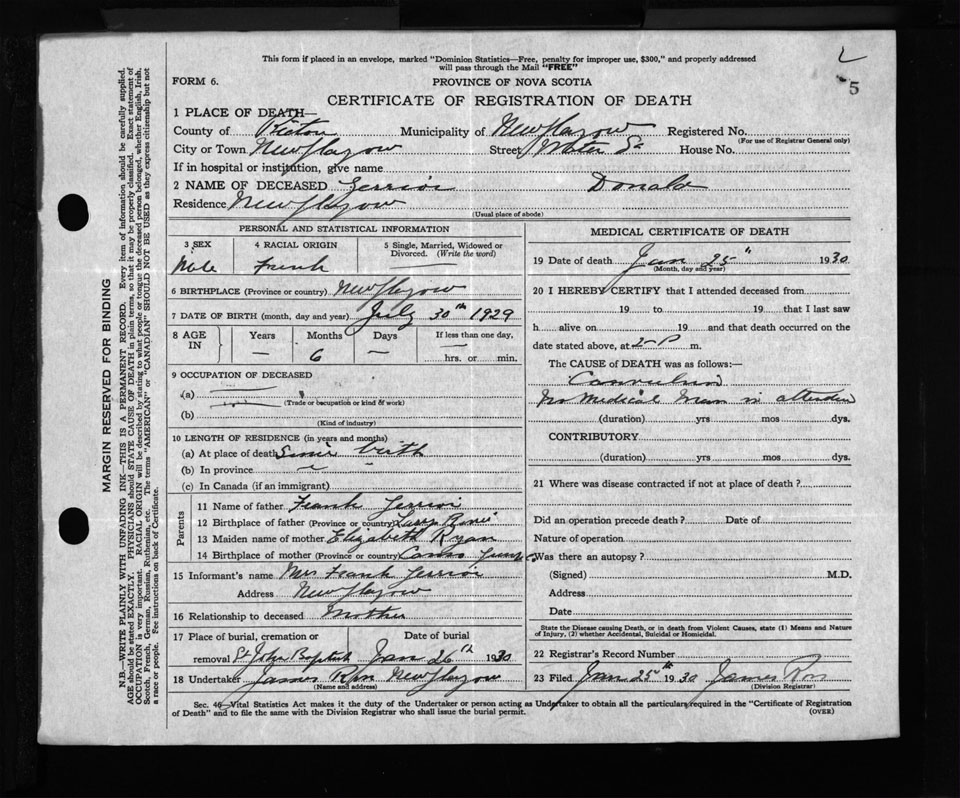 This form if placed in an envelope, marked "Dominion Statistics—Free, penalty for improper use, $300," and properly addressed
will pass through the Mail "FREE"
5
FORM 6.
PROVINCE OF NOVA SCOTIA
CERTIFICATE OF REGISTRATION OF DEATH
1 PLACE OF DEATH—
County of Pictou Municipality of New Glasgow Registered No.
(For use of Registrar General only)
City or Town New Glasgow Street Water St House No.
If in hospital or institution, give name
2 NAME OF DECEASED Donald
Residence New Glasgow
(Usual place of abode)
PERSONAL AND STATISTICAL INFORMATION
3 SEX 4 RACIAL ORIGIN 5 Single, Married, Widowed or
Divorced. (Write the word)
Male French
6 BIRTHPLACE (Province or country) New Glasgow
7 DATE OF BIRTH (month, day and year) July 30th 1929
8 AGE IN Years Months Days If less than one day,
— 6 — hrs. or min.
9 OCCUPATION OF DECEASED
(a)
(Trade or occupation or kind of work)
(b)
(Kind of industry)
10 LENGTH OF RESIDENCE (in years and months)
(a) At place of death Since birth
(b) In province
(c) In Canada (if an immigrant)
Parents
11 Name of father Frank
12 Birthplace of father (Province or country)
13 Maiden name of mother Elizabeth Ryan
14 Birthplace of mother (Province or country) Canso
15 Informant's name Mrs Frank
Address New Glasgow
16 Relationship to deceased Mother
17 Place of burial, cremation or Date of burial
removal St John Baptist Jan 26th 1930
18 Undertaker James New Glasgow
(Name and address)
MEDICAL CERTIFICATE OF DEATH
19 Date of death Jan 25" 1930
(Month, day and year)
20 I HEREBY CERTIFY that I attended deceased from
19 to 19 that I last saw
h alive on 19 and that death occurred on the
date stated above, at 2 P m.
The CAUSE of DEATH was as follows:—
Convulsions
No Medical Man in
(duration) yrs mos dys.
CONTRIBUTORY
(duration) yrs mos dys.
21 Where was disease contracted if not at place of death?
Did an operation precede death? Date of
Nature of operation
Was there an autopsy?
(Signed) M.D.
Address
Date
State the Disease causing Death, or in death from Violent Causes, state (1) Means and Nature
of Injury, (2) whether Accidental, Suicidal or Homicidal.
22 Registrar's Record Number
23 Filed Jan 25th 1930 James
(Division Registrar)
Sec. 46—Vital Statistics Act makes it the duty of the Undertaker or person acting as Undertaker to obtain all the particulars required in the "Certificate of Registration
of Death" and to file the same with the Division Registrar who shall issue the burial permit.
(OVER)
MARGIN RESERVED FOR BINDING
N.B.—WRITE PLAINLY WITH UNFADING INK—THIS IS A PERMANENT RECORD. Every item of information should be carefully supplied.
AGE should be stated EXACTLY. PHYSICIANS should STATE CAUSE OF DEATH in plain terms, so that it may be properly classified. Exact statement of
OCCUPATION is very important. RACIAL ORIGIN will be described by stating to what people or tongue the deceased person belonged, whether English, Irish,
Scotch, French, German, Russian, Ruthenian, etc. The terms "AMERICAN" or "CANADIAN" SHOULD NOT BE USED as they express citizenship but not
a race or people. Fee instructions on back of Certificate.